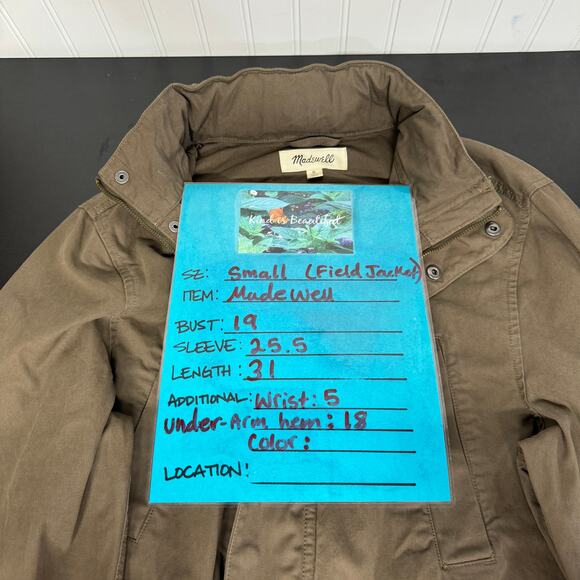 Madewell
S
Kind is Beautiful
SZ: Small (Field Jacket)
ITEM: Madewell
BUST: 19
SLEEVE: 25.5
LENGTH: 31
ADDITIONAL: Wrist: 5
Under-Arm hem: 18
Color:
LOCATION: